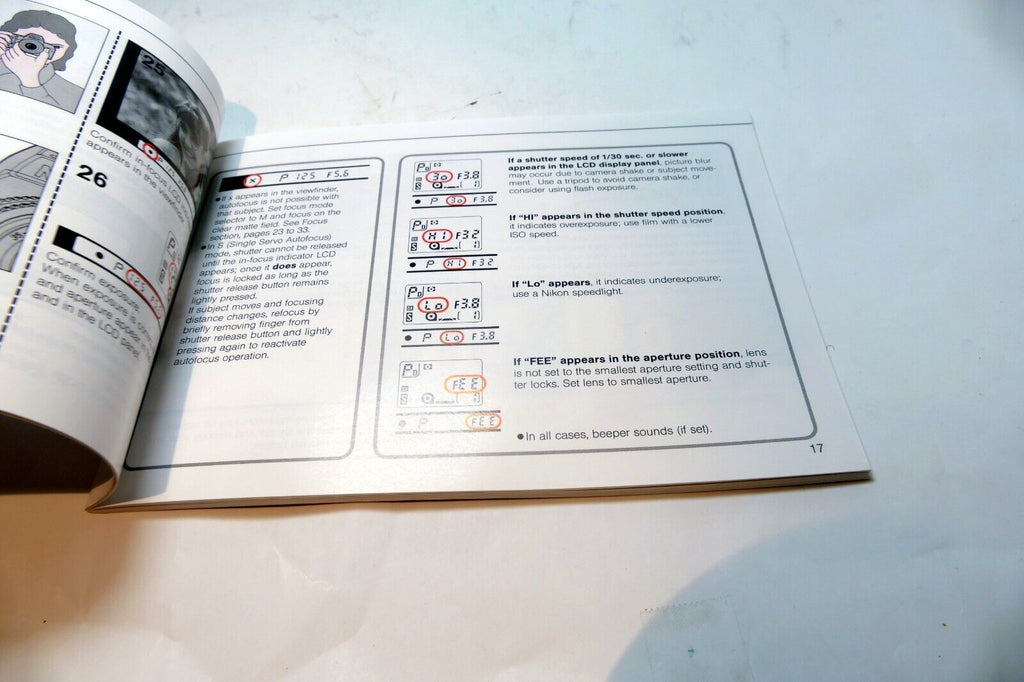 25
Confirm in-focus LCD
appears in the
26
P 125 F5
Confirm exposure.
When exposure is
and aperture appear
and in the LCD panel
x P 125 F5.6
● If x appears in the viewfinder,
autofocus is not possible with
that subject. Set focus mode
selector to M and focus on the
clear matte field. See Focus
section, pages 23 to 33.
● In S (Single Servo Autofocus)
mode, shutter cannot be released
until the in-focus indicator LCD
appears; once it does appear,
focus is locked as long as the
shutter release button remains
lightly pressed.
If subject moves and focusing
distance changes, refocus by
briefly removing finger from
shutter release button and lightly
pressing again to reactivate
autofocus operation.
PD
30 F3.8
S 1
● P 30 F3.8
If a shutter speed of 1/30 sec. or slower
appears in the LCD display panel, picture blur
may occur due to camera shake or subject move-
ment. Use a tripod to avoid camera shake, or
consider using flash exposure.
PD
HI F32
S 1
● P HI F32
If "HI" appears in the shutter speed position,
it indicates overexposure; use film with a lower
ISO speed.
PD
Lo F3.8
S 1
● P Lo F3.8
If "Lo" appears, it indicates underexposure;
use a Nikon speedlight.
PD
FEE
S 1
● P FEE
If "FEE" appears in the aperture position, lens
is not set to the smallest aperture setting and shut-
ter locks. Set lens to smallest aperture.
● In all cases, beeper sounds (if set).
17